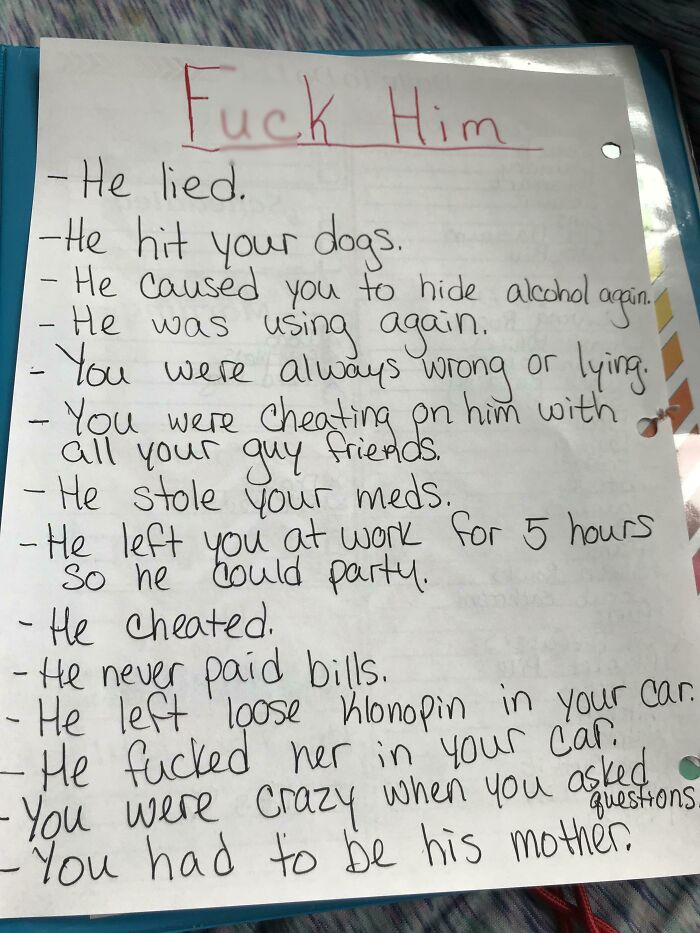 Fuck Him
- He lied.
- He hit your dogs.
- He caused you to hide alcohol again.
- He was using again.
- You were always wrong or lying.
- You were cheating on him with
all your guy friends.
- He stole your meds.
- He left you at work for 5 hours
so he could party.
- He cheated.
- He never paid bills.
- He left loose Klonopin in your car.
- He fucked her in your car.
- You were crazy when you asked
questions.
- You had to be his mother.